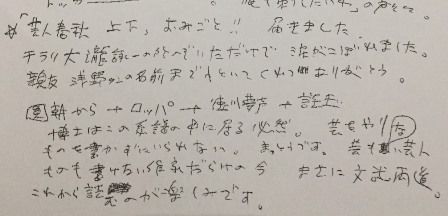 芸人春秋 上下、おみごと!! 届きました
チラリ大瀧詠一のをよんでいただけで 涙がこぼれました。
親友 浅野さんの名前まで入れといてくれてありがとう。
圓朝から→ロッパ→徳川夢声→談志
博士はこの系譜の中に居る必然。 芸をやり
ものを書かずにいられない。 まっとうです。 芸も 芸人
ものも書けない作家だらけの今 まさに文武両道。
これから読むのが楽しみです。